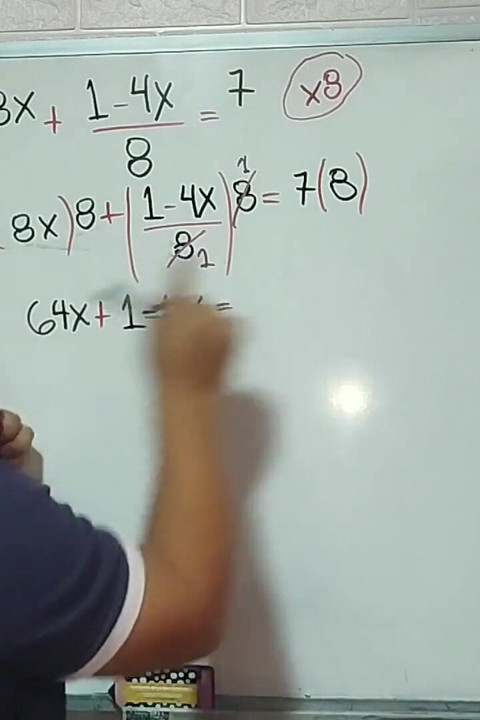 8x + 1-4x/8 = 7 x8
8x)8 + (1-4x/8 1)8 1 = 7(8)
64x + 1- =